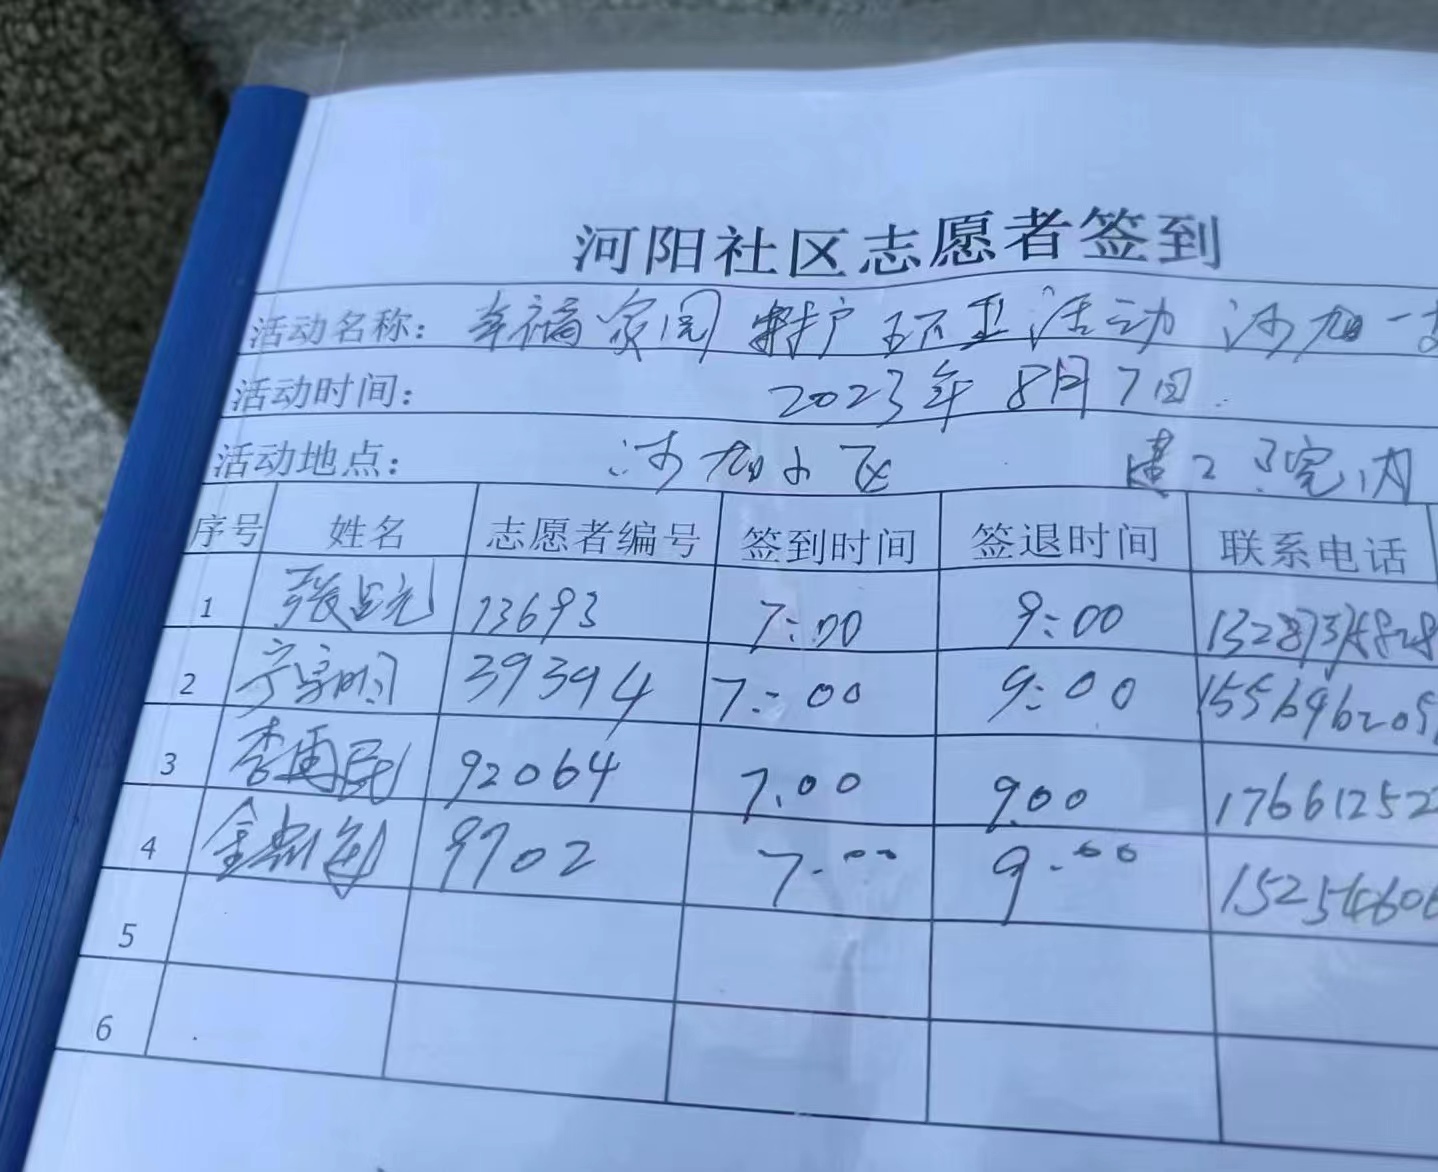 河阳社区志愿者签到
活动名称: 幸福家园 维护环卫活动 沙加一
活动时间: 2023年8月7日.
活动地点: 沙加小区 建工院内
序号 姓名 志愿者编号 签到时间 签退时间 联系电话
1 张 73693 7:00 9:00 132873
2 39394 7:00 9:00 155696205
3 李 民 92064 7.00 9.00 17661252
4 金 9702 7:00 9:00 15254606
5
6